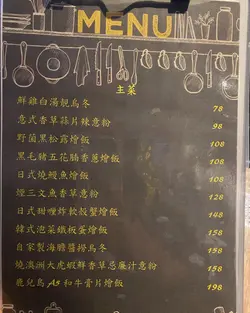 MENU
主菜
鮮雞白湯靚烏冬 78
意式香草蒜片辣意粉 98
野菌黑松露燴飯 108
黑毛豬五花腩香蔥燴飯 108
日式燒鰻魚燴飯 108
煙三文魚香草意粉 128
日式甜糎炸軟殼蟹燴飯 148
韓式泡菜鐵板蛋燴飯 158
自家製海膽醬撈烏冬 158
燒澳洲大虎蝦鮮香草忌廉汁意粉 158
鹿兒島A5和牛膏片燴飯 198